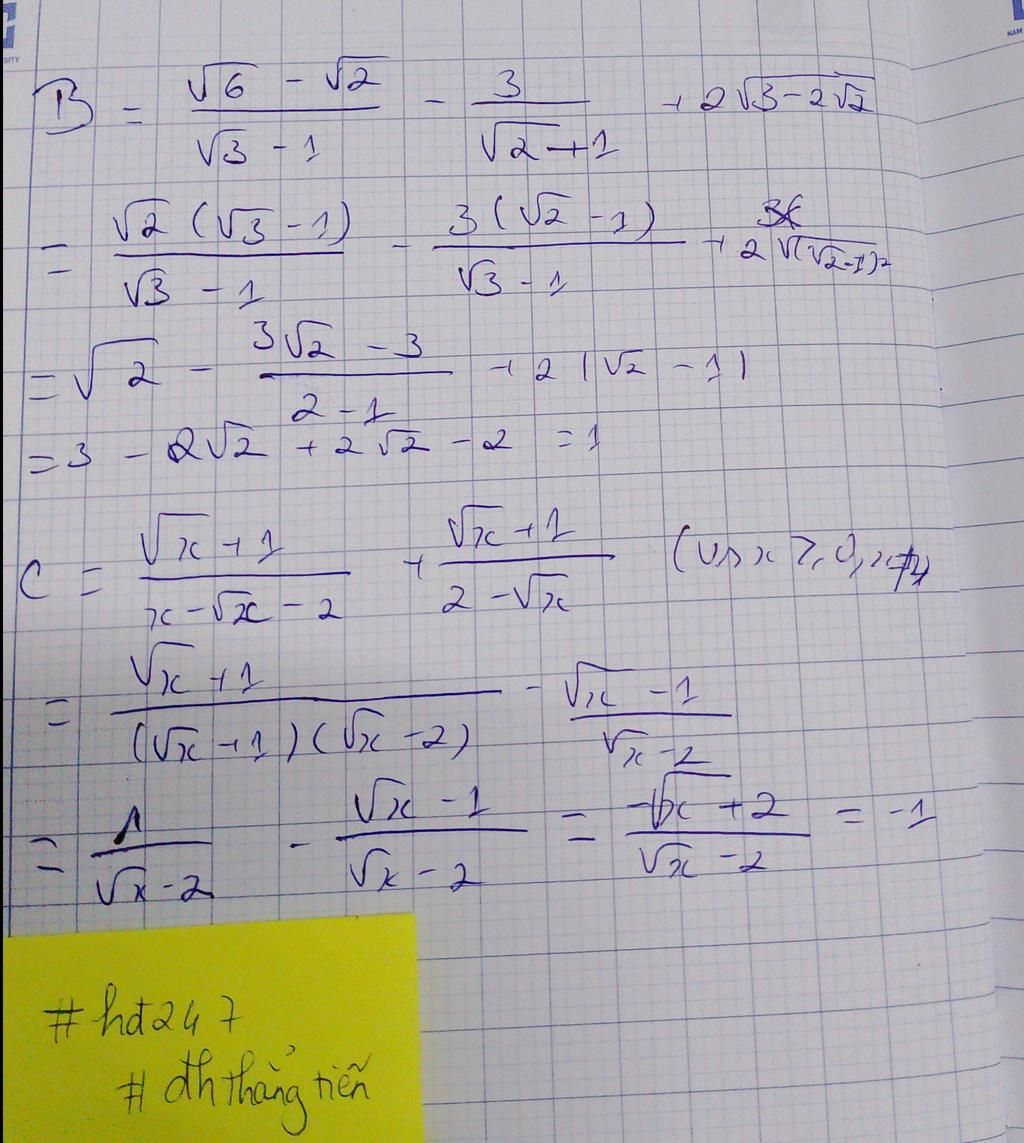 B = (√6 - √2)/(√3 - 1) - 3/(√2 + 1) + 2√(3 - 2√2)
= √2(√3 - 1)/(√3 - 1) - 3(√2 - 1)/(√3 - 1) + 2√((√2 - 1)²)
= √2 - (3√2 - 3)/(2 - 1) + 2|√2 - 1|
= 3 - 2√2 + 2√2 - 2 = 1
C = (√x + 1)/(x - √x - 2) + (√x + 1)/(2 - √x) ( x ≥ 0, x ≠ 4
= (√x + 1)/((√x + 1)(√x - 2)) - (√x - 1)/(√x - 2)
= 1/(√x - 2) - (√x - 1)/(√x - 2) = (-√x + 2)/(√x - 2) = -1
#hđ247
#đththẳngtiến